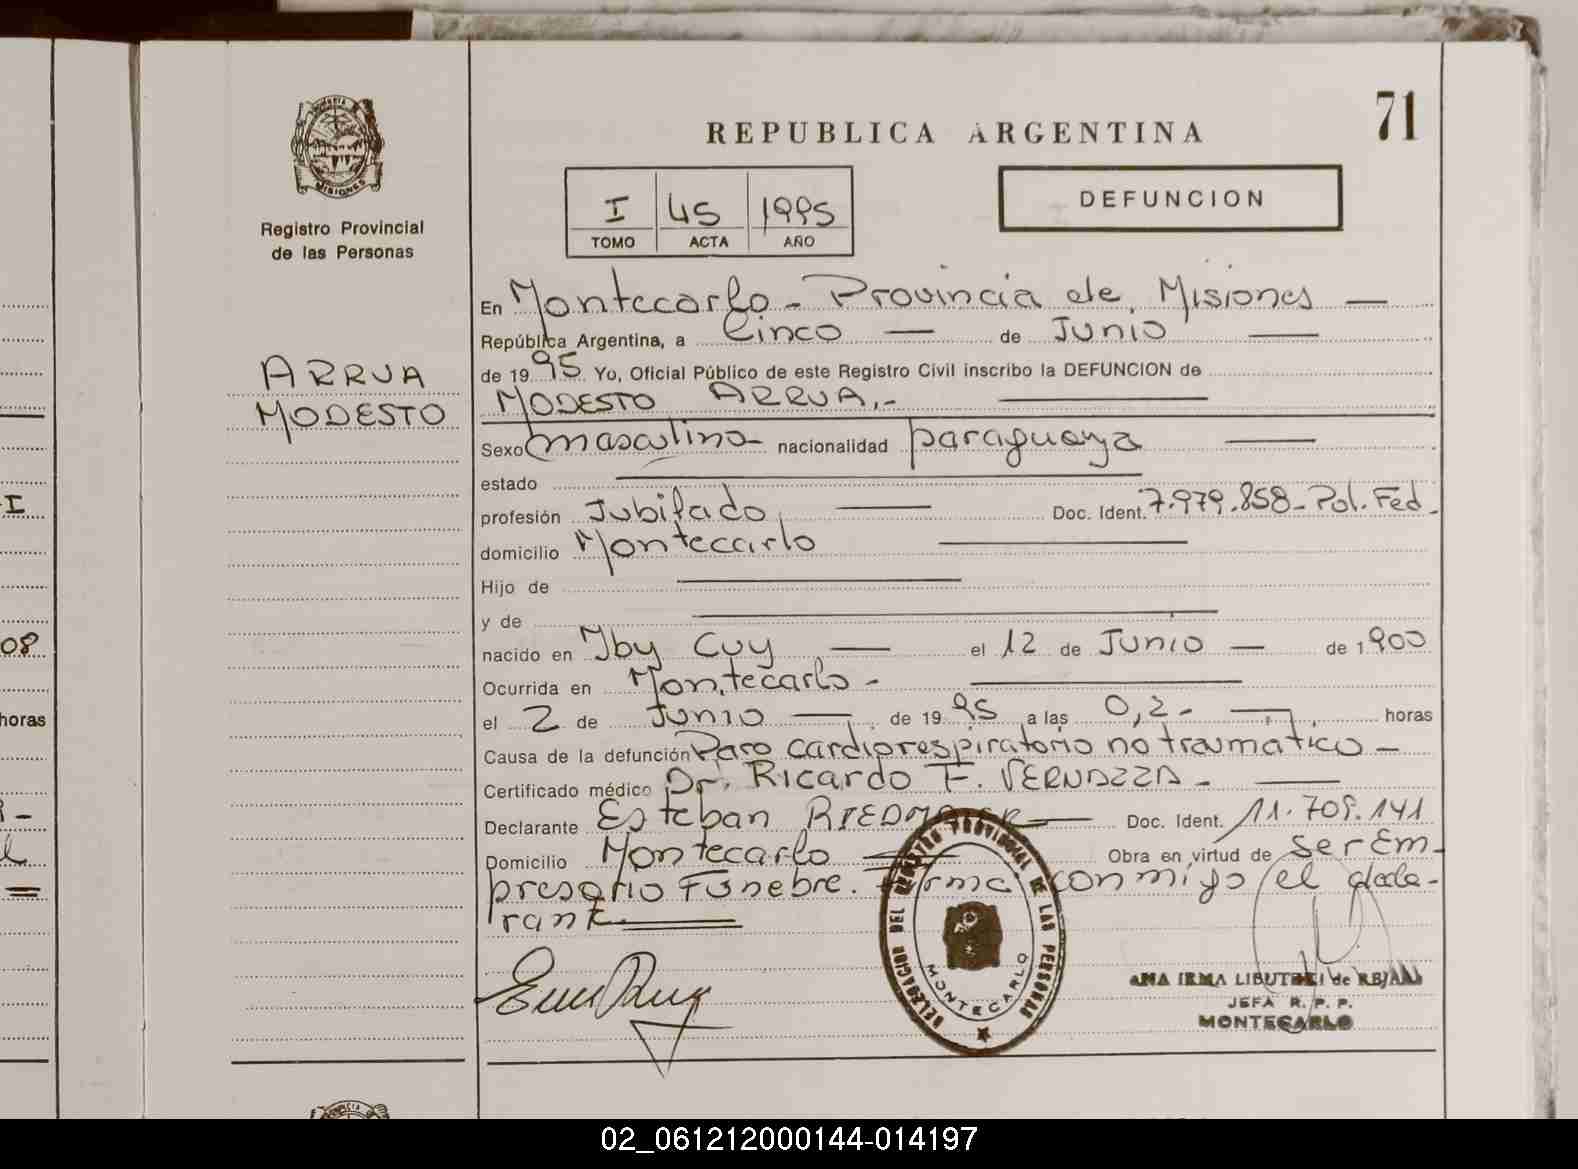 71
REPUBLICA ARGENTINA
MISIONES
Registro Provincial
de las Personas
I 45 1995
TOMO ACTA AÑO
DEFUNCION
ARRUA
MODESTO
En Montecarlo - Provincia de Misiones —
República Argentina, a Cinco — de Junio —
de 1995 Yo, Oficial Público de este Registro Civil inscribo la DEFUNCION de
MODESTO ARRUA.- —
Sexo masculino nacionalidad paraguaya —
estado —
profesión Jubilado — Doc. Ident. 7.979.858- Pol. Fed.
domicilio Montecarlo —
Hijo de —
y de —
nacido en Iby Cuy — el 12 de Junio — de 1.900
Ocurrida en Montecarlo - —
el 2 de Junio — de 1995 a las 0,2.- — horas
Causa de la defunción Paro cardiprespiratorio no traumatico —
Certificado médico Dr. Ricardo F. VERNAZZA - —
Declarante Esteban — Doc. Ident. 11.709.141
Domicilio Montecarlo — Obra en virtud de Ser Em-
presario Funebre. Firma conmigo el decla-
rante. —
DELEGACION DEL REGISTRO PROVINCIAL DE LAS PERSONAS
MONTECARLO
ANA IRMA de
JEFA R. P. P.
MONTECARLO
I
08
horas
02_061212000144-014197